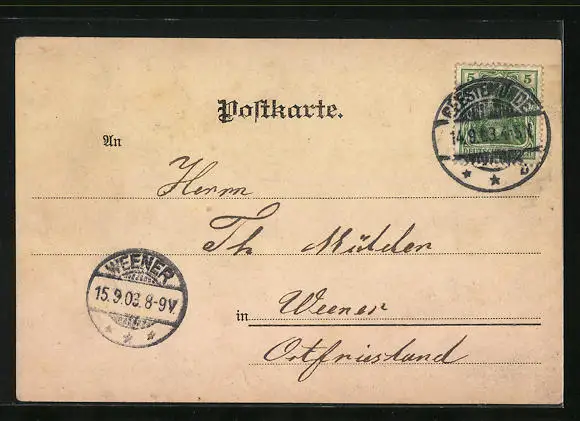 5 5
GEESTEMÜNDE
14.9.03. 4-5N.
Postkarte.
An
Herrn
Th. Mülder
WEENER
15.9.03. 8-9V.
in Weener
Ostfriesland